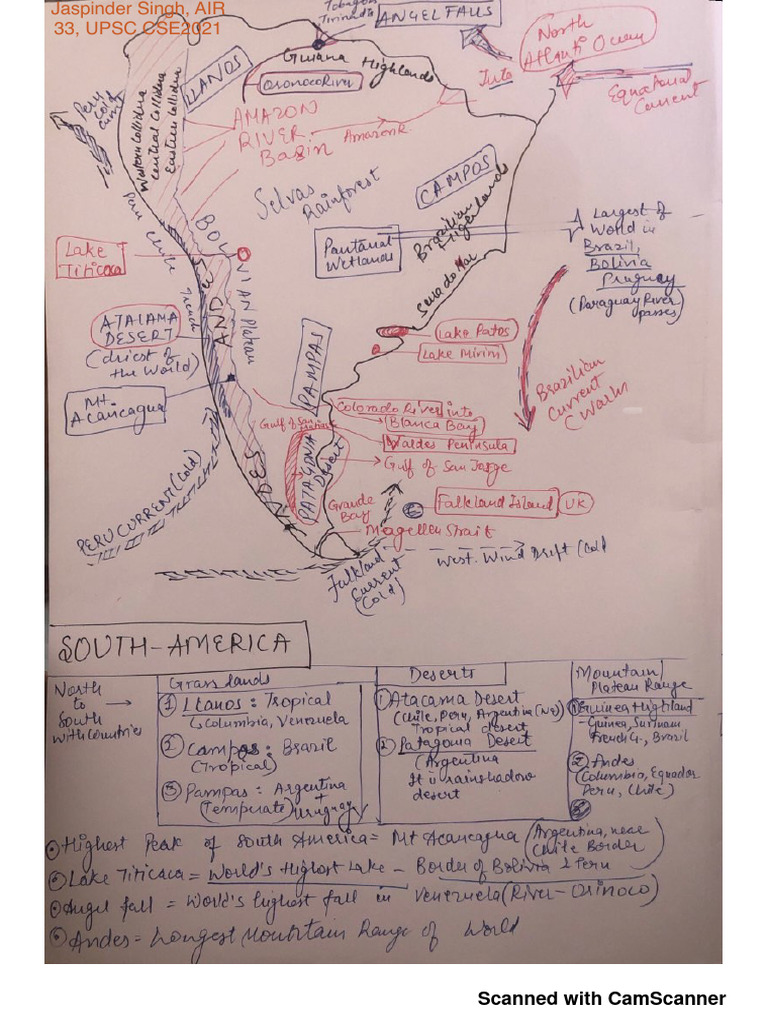 Jaspinder Singh, AIR
33, UPSC CSE2021
Tobago
Trinidad
ANGEL FALLS
North
Atlanti Ocean
Into
Equatorial
Current
Guiana Highlands
LLANOS
Oronoco River
Peru
cold
AMAZON
RIVER
Basin
Amazon R.
Selvas
Rainforest
CAMPOS
Brazilian
Pantanal
Wetlands
Largest of
World in
Brazil,
Bolivia
(Paraguay River
passes)
Lake
Titicaca
BOLIVIAN Plateau
Peru Chile Trench
ANDES
ATACAMA
DESERT
(driest of
the World)
Mt.
Acancagua
PAMPAS
Lake Patos
Lake Mirim
Brazilian
Current
Warm
Colorado River into
Blanca Bay
Valdes Peninsula
Gulf of San
Gulf of San Jorge
PATAGONIA
Desert
Grande
Bay
Falkland Island UK
Magellen Strait
PERU CURRENT (Cold)
West Wind Drift (Cold
Falkland
Current
(Cold)
SOUTH-AMERICA
North
to
South
with countries
Grasslands
① Llanos: Tropical
Columbia, Venezuela
② Campos: Brazil
(Tropical)
③ Pampas: Argentina
(Temperate) + Uruguay
Deserts
① Atacama Desert
(Chile, Peru, Argentina
Tropical desert
② Patagonia Desert
(Argentina
It is rainshadow
desert
Mountain
Plateau Range
① Guinea Highland
- Guinea, Surinam
French G., Brazil
② Andes
(Columbia, Equador
Peru, Chile)
Highest Peak of South America = Mt Acancagua (Argentina, near
Chile Border)
Lake Titicaca = World's Highest Lake - Border of Bolivia & Peru
Angel fall = World's highest fall in Venezuela (River-Orinoco)
Andes = Longest Mountain Range of World
Scanned with CamScanner